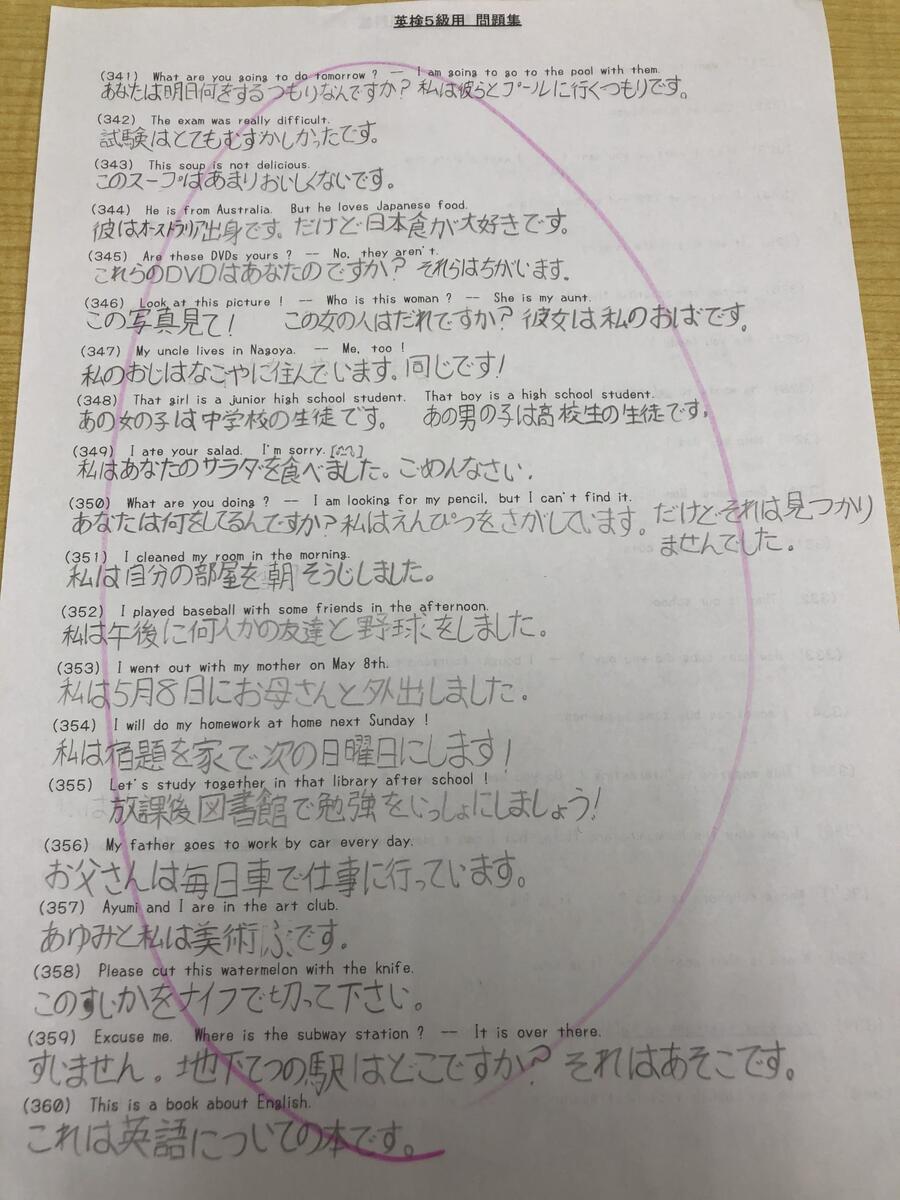 英検5級用 問題集
(341) What are you going to do tomorrow ? -- I am going to go to the pool with them.
あなたは明日何をするつもりなんですか? 私は彼らとプールに行くつもりです。
(342) The exam was really difficult.
試験はとてもむずかしかったです。
(343) This soup is not delicious.
このスープはあまりおいしくないです。
(344) He is from Australia. But he loves Japanese food.
彼はオーストラリア出身です。だけど日本食が大好きです。
(345) Are these DVDs yours ? -- No, they aren't.
これらのDVDはあなたのですか? それらはちがいます。
(346) Look at this picture ! -- Who is this woman ? -- She is my aunt.
この写真見て! この女の人はだれですか? 彼女は私のおばです。
(347) My uncle lives in Nagoya. -- Me, too !
私のおじはなごやに住んでいます。同じです!
(348) That girl is a junior high school student. That boy is a high school student.
あの女の子は中学校の生徒です。 あの男の子は高校生の生徒です。
(349) I ate your salad. I'm sorry.
私はあなたのサラダを食べました。ごめんなさい.
(350) What are you doing ? -- I am looking for my pencil, but I can't find it.
あなたは何をしてるんですか? 私はえんぴつをさがしています。だけどそれは見つかり
ませんでした。
(351) I cleaned my room in the morning.
私は自分の部屋を朝そうじしました。
(352) I played baseball with some friends in the afternoon.
私は午後に何人かの友達と野球をしました。
(353) I went out with my mother on May 8th.
私は5月8日にお母さんと外出しました.
(354) I will do my homework at home next Sunday !
私は宿題を家で次の日曜日にします!
(355) Let's study together in that library after school !
放課後図書館で勉強をいっしょにしましょう!
(356) My father goes to work by car every day.
お父さんは毎日車で仕事に行っています。
(357) Ayumi and I are in the art club.
あゆみと私は美術ぶです。
(358) Please cut this watermelon with the knife.
このすいかをナイフで切って下さい。
(359) Excuse me. Where is the subway station ? -- It is over there.
すいません。地下てつの駅はどこですか? それはあそこです。
(360) This is a book about English.
これは英語についての本です。